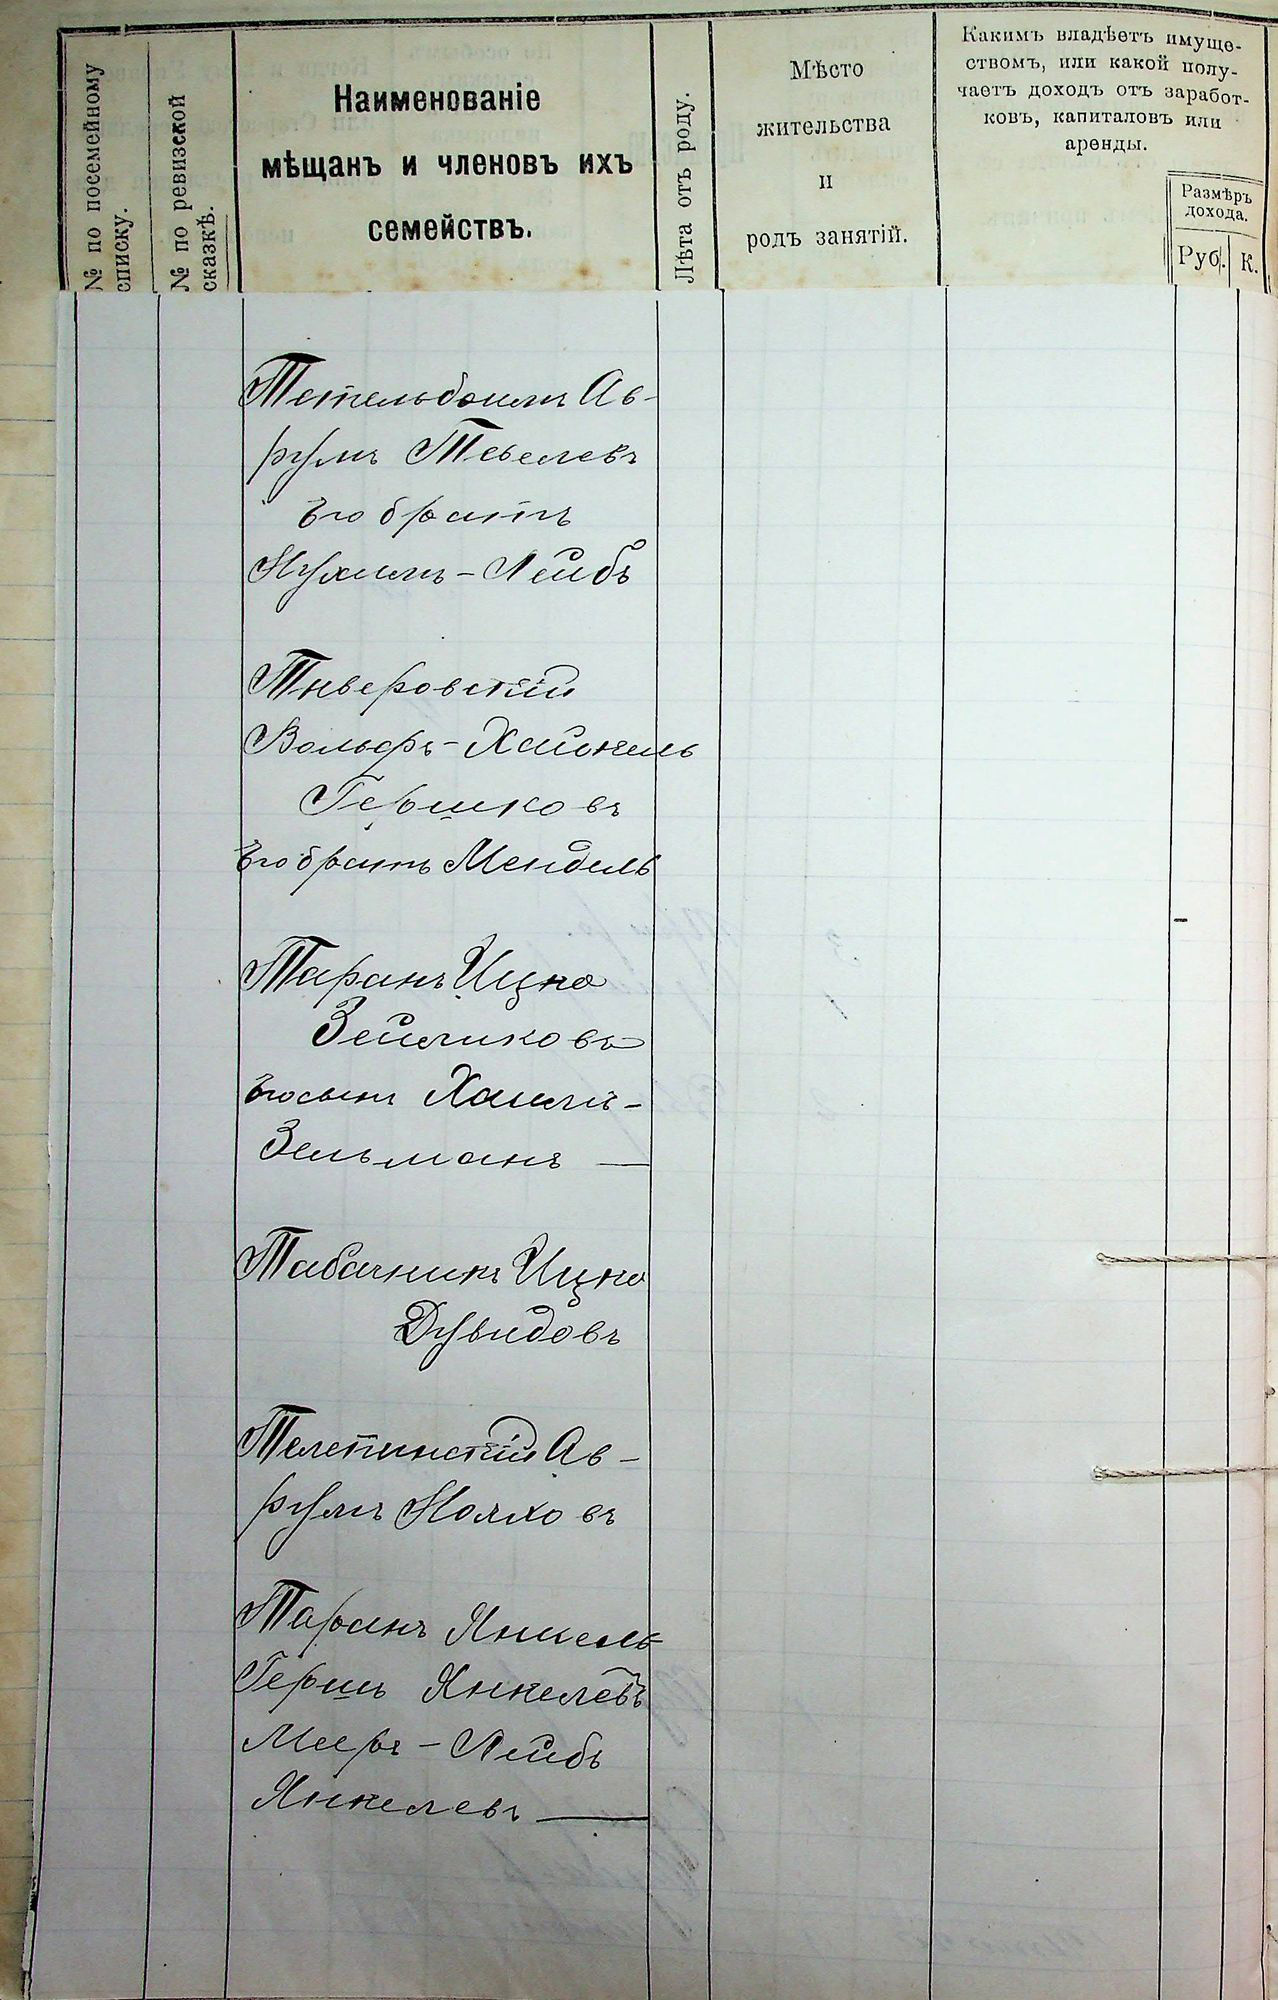 № по посемейному
списку.
№ по ревизской
сказкѣ.
Наименованіе
мѣщанъ и членовъ ихъ
семействъ.
Лѣта отъ роду.
Мѣсто
жительства
и
родъ занятій.
Какимъ владѣетъ имуще-
ствомъ, или какой полу-
чаетъ доходъ отъ заработ-
ковъ, капиталовъ или
аренды.
Размѣръ
дохода.
Руб. К.
Тетельбоимъ Ав-
румъ Тевелевъ
Его братъ
Нухимъ-Лейбъ
Тверовскій
Вольфъ-Хаинкель
Гершковъ
Его братъ Мендель
Таранъ Ицко
Зейликовъ
Его сынъ Хаимъ-
Зельманъ —
Табачникъ Ицко
Дувидовъ
Телепинскій Ав-
румъ Нояховъ
Таранъ Янкель-
Гершъ Янкелевъ
Мееръ-Лейбъ
Янкелевъ —